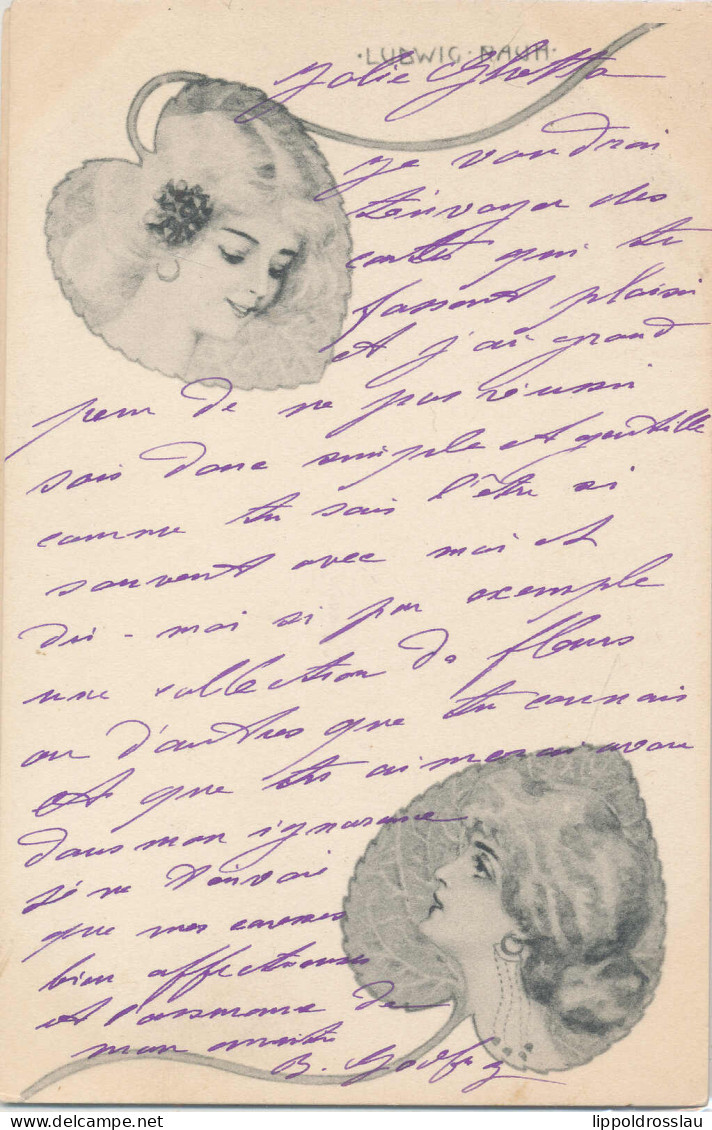 ·LUDWIG·RAUH·
Jolie Ghetta
je voudrai
t'envoyer des
cartes qui te
fassent plaisir
et j'ai grand
peur de ne pas réussir
sois donc simple et gentille
comme tu sais l'être si
souvent avec moi et
dis-moi si par exemple
une collection de fleurs
ou d'autres que tu connais
et que tu aimerai avoir
dans mon ignorance
je ne t'envoie
que mes caresses
bien affectueuses
et l'assurance de
mon amitié
B. Godfroy
lippoldrosslau